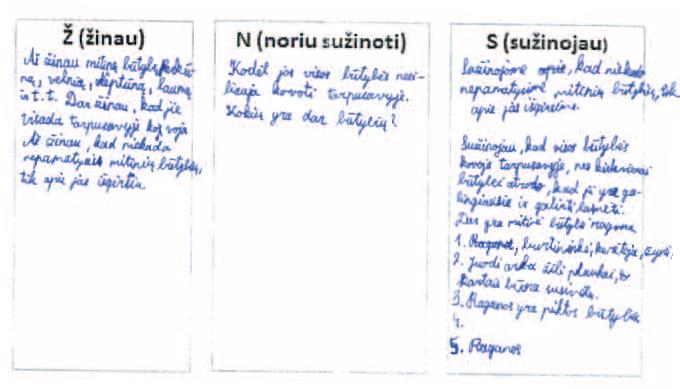 Ž (žinau)
Aš žinau mitinę būtybę,
ną, velnią, Neptūną, laumę
ir t. t. Dar žinau, kad jie
visada tarpusavyje kovoja
Aš žinau, kad niekada
nepamatysiu mitinių būtybių,
tik apie jas išgirsiu
N (noriu sužinoti)
Kodėl jos visos būtybės nesi-
liauja kovoti tarpusavyje.
Kokių yra dar būtybių?
S (sužinojau)
Sužinojome apie, kad niekada
nepamatysime mitinių būtybių, tik
apie jas išgirsime.
Sužinojau, kad visos būtybės
kovoja tarpusavyje, nes kiekvienai
būtybei atrodo, kad ji yra ga-
lingiausia ir galinti laimėti.
Dar yra mitinė būtybė ragana.
1. Ragana, burtininkė, kerėtoja,
2. Juodi arba žili plaukai,
kartais būna susivėlę.
3. Raganos yra piktos būtybės
4.
5. Raganos